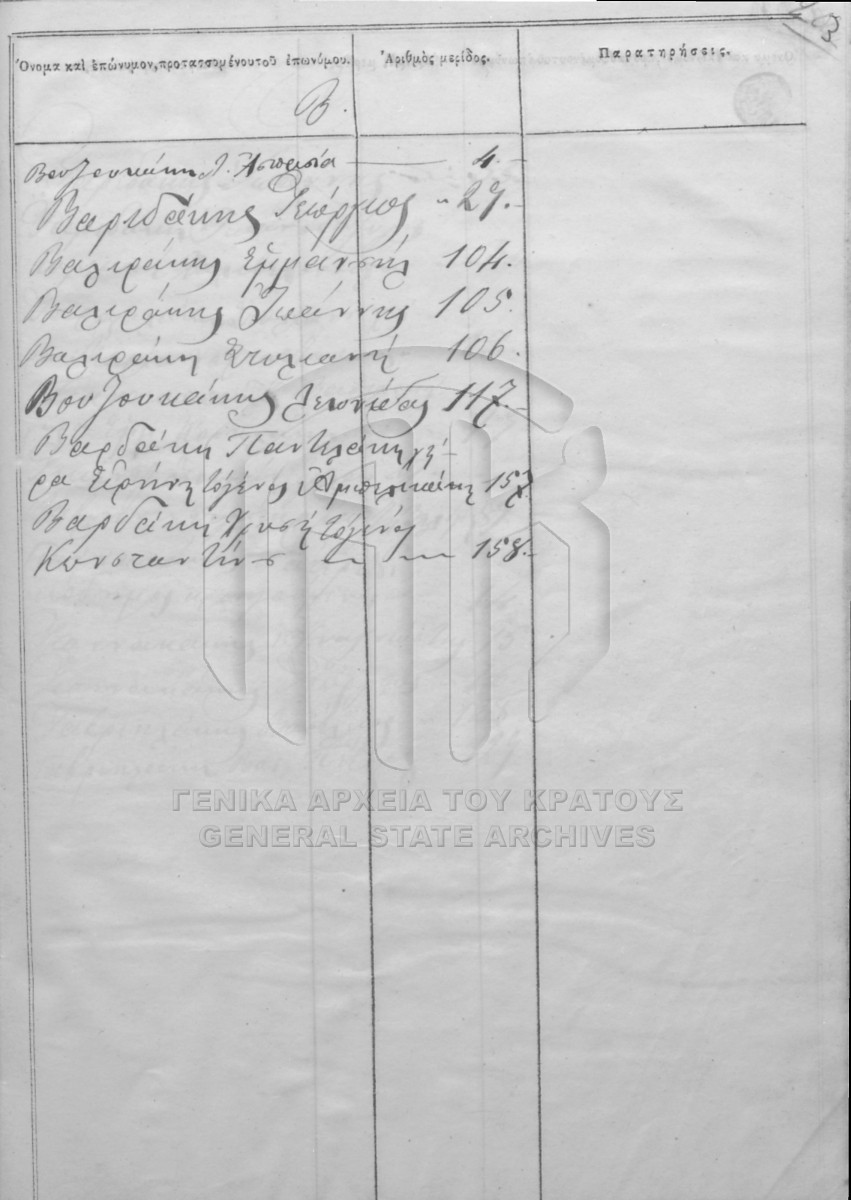 Ὄνομα καὶ ἐπώνυμον, προτασσομένου τοῦ ἐπωνύμου. Ἀριθμὸς μερίδος. Παρατηρήσεις.
Β.
Βουζουκάκη Λ. Ἀσπασία 4.
Βαριδάκης Γεώργιος " 27.
Βαλιράκης Ἐμμανουήλ 104.
Βαλιράκης Ἰωάννης 105.
Βαλιράκη Στυλιανή 106.
Βουζουκάκης Λεωνίδας 117.
Βαρδάκη Παντελάκη χή-
ρα Εἰρήνη τὸ γένος 157
Βαρδάκη Χρυσῆ τὸ γένος
Κωνσταντίνου 158.
ΓΕΝΙΚΑ ΑΡΧΕΙΑ ΤΟΥ ΚΡΑΤΟΥΣ
GENERAL STATE ARCHIVES